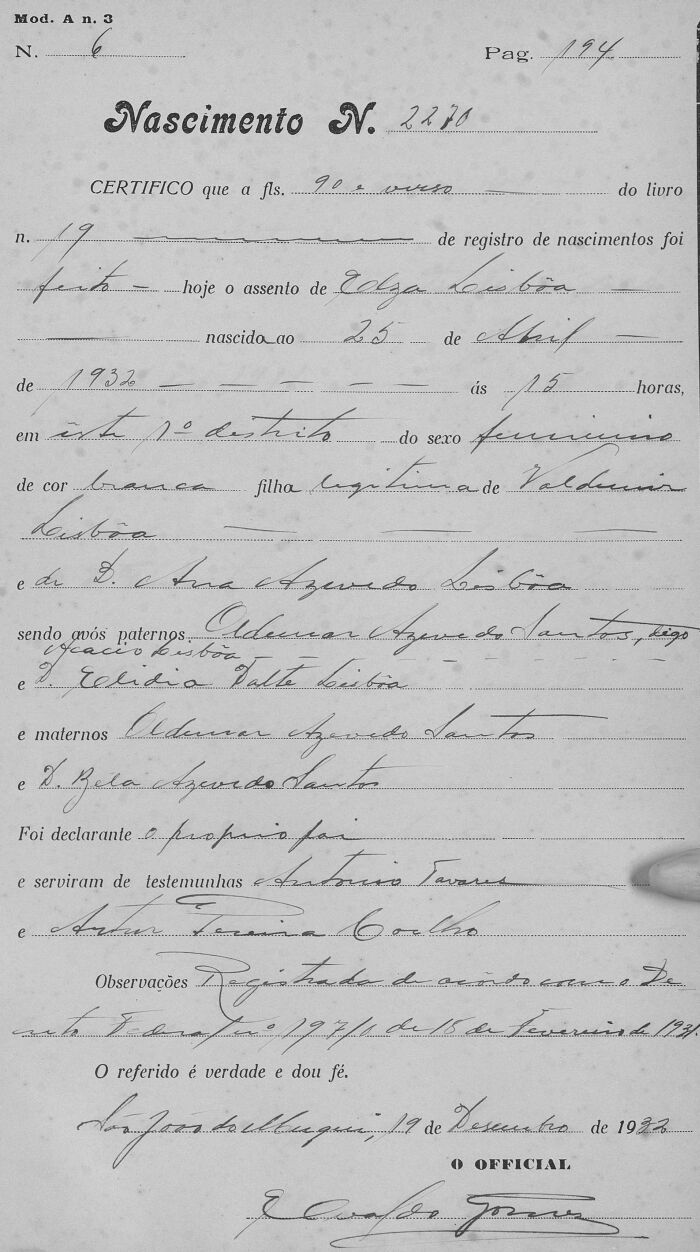 Mod. A n. 3
N. 6 Pag. 194
Nascimento N. 2270
CERTIFICO que a fls. 90 e verso do livro
n. 19 de registro de nascimentos foi
feito hoje o assento de Edza Lisbôa
nascida ao 25 de Abril
de 1932 ás 15 horas,
em este 1º destrito do sexo femenino
de cor branca filha legitima de Valdemir
Lisbôa
e de D. Ana Azevedo Lisbôa
sendo avós paternos Oldemar Azevedo Santos, digo
Acacio Lisbôa
e D. Elidia Dalte Lisbôa
e maternos Oldemar Azevedo Santos
e D. Bela Azevedo Santos
Foi declarante o proprio pai
e serviram de testemunhas Antonio Tavares
e Artur Pereira Coelho
Observações Registrada de acôrdo com o De
creto Federal nº 19710 de 18 de Fevereiro de 1931.
O referido é verdade e dou fé.
São João do Muqui, 19 de Desembro de 1932
O OFFICIAL
Evaldo Gomes